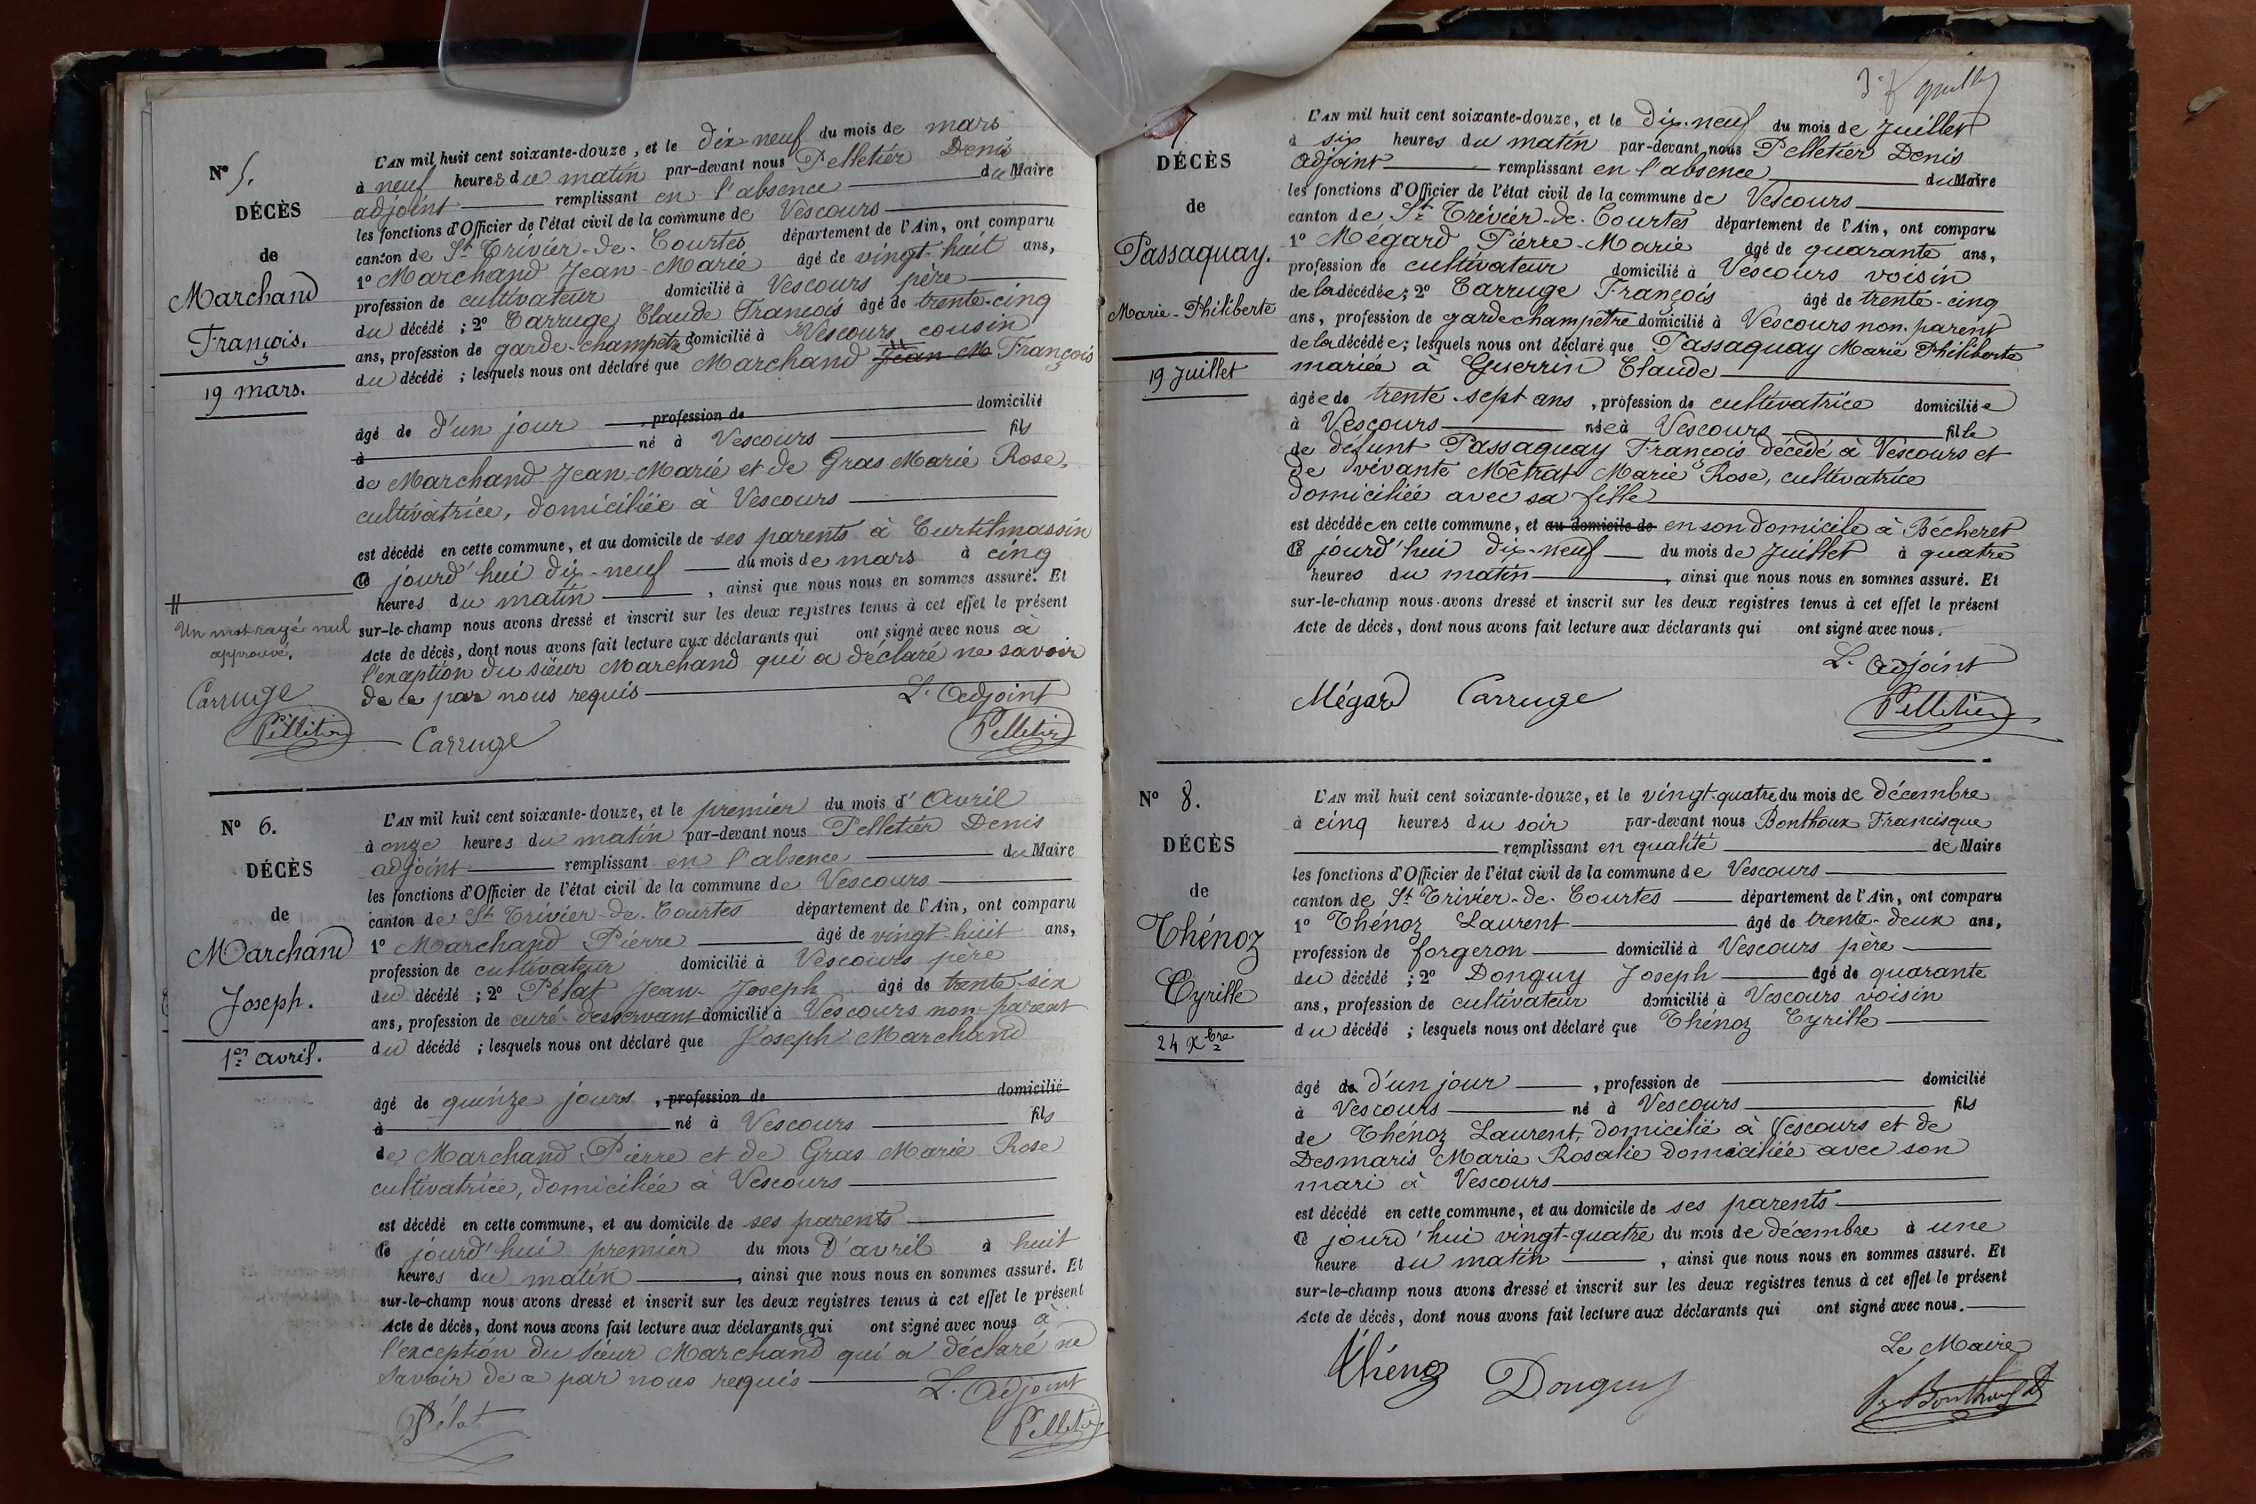 N° 5.
DÉCÈS
de
Marchand
François.
19 mars.
L'AN mil huit cent soixante-douze, et le dix neuf du mois de mars
à neuf heures du matin par-devant nous Pelletier Denis
adjoint remplissant en l'absence du Maire
les fonctions d'Officier de l'état civil de la commune de Vescours
canton de St Trivier-de-Courtes département de l'Ain, ont comparu
1° Marchand Jean-Marie âgé de vingt-huit ans,
profession de cultivateur domicilié à Vescours père
du décédé ; 2° Carruge Claude François âgé de trente-cinq
ans, profession de garde-champetre domicilié à Vescours cousin
du décédé ; lesquels nous ont déclaré que Marchand Jean M François
âgé de d'un jour , profession de domicilié
à né à Vescours fils
de Marchand Jean-Marie et de Gras Marie Rose,
cultivatrice, domiciliée à Vescours
est décédé en cette commune, et au domicile de ses parents à Curtilmassin
ce jourd'hui dix-neuf du mois de mars à cinq
heures du matin , ainsi que nous nous en sommes assuré. Et
sur-le-champ nous avons dressé et inscrit sur les deux registres tenus à cet effet le présent
Acte de décès, dont nous avons fait lecture aux déclarants qui ont signé avec nous à
l'exception du sieur Marchand qui a déclaré ne savoir
de ce par nous requis
Un mot rayé nul
approuvé.
Carruge
Pelletier
Carruge
L'adjoint
Pelletier
N° 6.
DÉCÈS
de
Marchand
Joseph.
1er avril.
L'AN mil huit cent soixante-douze, et le premier du mois d'Avril
à onze heures du matin par-devant nous Pelletier Denis
adjoint remplissant en l'absence du Maire
les fonctions d'Officier de l'état civil de la commune de Vescours
canton de St Trivier-de-Courtes département de l'Ain, ont comparu
1° Marchand Pierre âgé de vingt-huit ans,
profession de cultivateur domicilié à Vescours père
du décédé ; 2° Pélat Jean-Joseph âgé de trente-six
ans, profession de curé-desservant domicilié à Vescours non-parent
du décédé ; lesquels nous ont déclaré que Joseph Marchand
âgé de quinze jours , profession de domicilié
à né à Vescours fils
de Marchand Pierre et de Gras Marie Rose
cultivatrice, domiciliée à Vescours
est décédé en cette commune, et au domicile de ses parents
ce jourd'hui premier du mois d'avril à huit
heures du matin , ainsi que nous nous en sommes assuré. Et
sur-le-champ nous avons dressé et inscrit sur les deux registres tenus à cet effet le présent
Acte de décès, dont nous avons fait lecture aux déclarants qui ont signé avec nous à
l'exception du sieur Marchand qui a déclaré ne
savoir de ce par nous requis
L'adjoint
Pélat
Pelletier
7
DÉCÈS
de
Passaquay.
Marie-Philiberte
19 Juillet
L'AN mil huit cent soixante-douze, et le dix-neuf du mois de Juillet
à six heures du matin par-devant nous Pelletier Denis
adjoint remplissant en l'absence du Maire
les fonctions d'Officier de l'état civil de la commune de Vescours
canton de St Trivier-de-Courtes département de l'Ain, ont comparu
1° Mégard Pierre-Marie âgé de quarante ans,
profession de cultivateur domicilié à Vescours voisin
de la décédée ; 2° Carruge François âgé de trente-cinq
ans, profession de garde champêtre domicilié à Vescours non-parent
de la décédée ; lesquels nous ont déclaré que Passaquay Marie Philiberte
mariée à Guerrin Claude
âgée de trente-sept ans , profession de cultivatrice domiciliée
à Vescours née à Vescours fille
de défunt Passaquay François décédé à Vescours et
de vivante Métrat Marie Rose, cultivatrice
domiciliée avec sa fille
est décédée en cette commune, et au domicile de en son domicile à Bécheret
ce jourd'hui dix-neuf du mois de Juillet à quatre
heures du matin , ainsi que nous nous en sommes assuré. Et
sur-le-champ nous avons dressé et inscrit sur les deux registres tenus à cet effet le présent
Acte de décès, dont nous avons fait lecture aux déclarants qui ont signé avec nous.
L'adjoint
Mégard Carruge
Pelletier
N° 8.
DÉCÈS
de
Thénoz
Cyrille
24 Xbre
L'AN mil huit cent soixante-douze, et le vingt-quatre du mois de décembre
à cinq heures du soir par-devant nous Bonthoux Francisque
remplissant en qualité de Maire
les fonctions d'Officier de l'état civil de la commune de Vescours
canton de St Trivier-de-Courtes département de l'Ain, ont comparu
1° Thénoz Laurent âgé de trente-deux ans,
profession de forgeron domicilié à Vescours père
du décédé ; 2° Donguy Joseph âgé de quarante
ans, profession de cultivateur domicilié à Vescours voisin
du décédé ; lesquels nous ont déclaré que Thénoz Cyrille
âgé de d'un jour , profession de domicilié
à Vescours né à Vescours fils
de Thénoz Laurent, domicilié à Vescours et de
Desmaris Marie Rosalie domiciliée avec son
mari à Vescours
est décédé en cette commune, et au domicile de ses parents
ce jourd'hui vingt-quatre du mois de décembre à une
heure du matin , ainsi que nous nous en sommes assuré. Et
sur-le-champ nous avons dressé et inscrit sur les deux registres tenus à cet effet le présent
Acte de décès, dont nous avons fait lecture aux déclarants qui ont signé avec nous.
Le Maire
Thénoz Donguy
Bonthoux